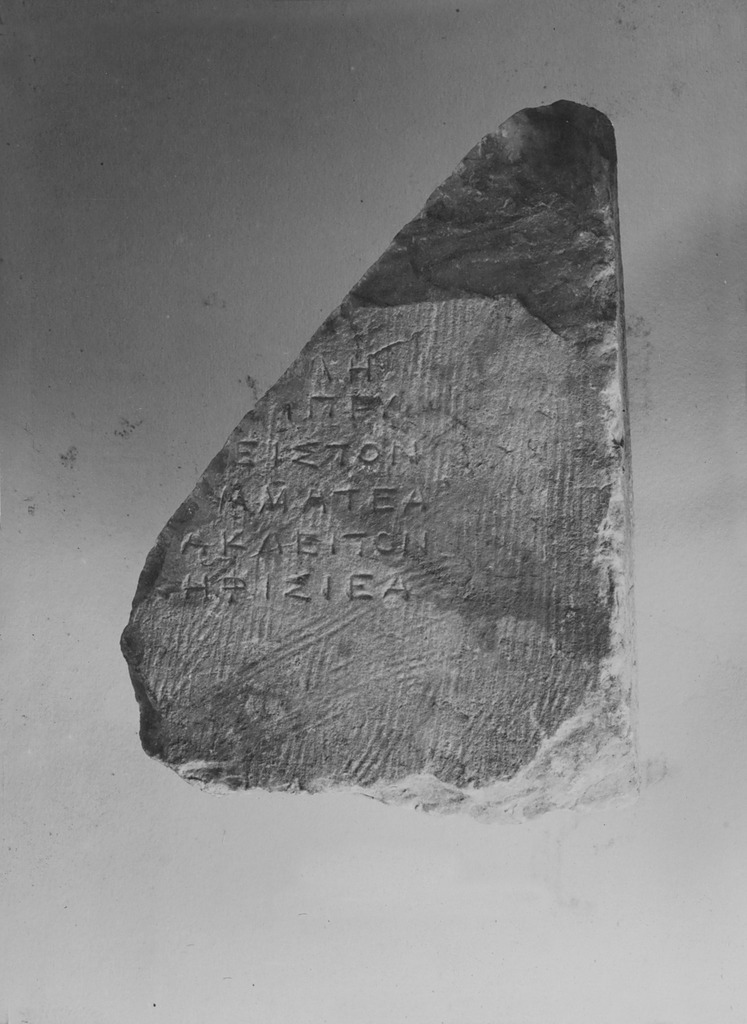 ΛΗ
ΠΡΥ
ΕΙΣΤΟΝ
ΑΜΑΤΕΑ
ΑΚΛΕΙΤΟΝ
ΗΦΙΣΙΕΑ